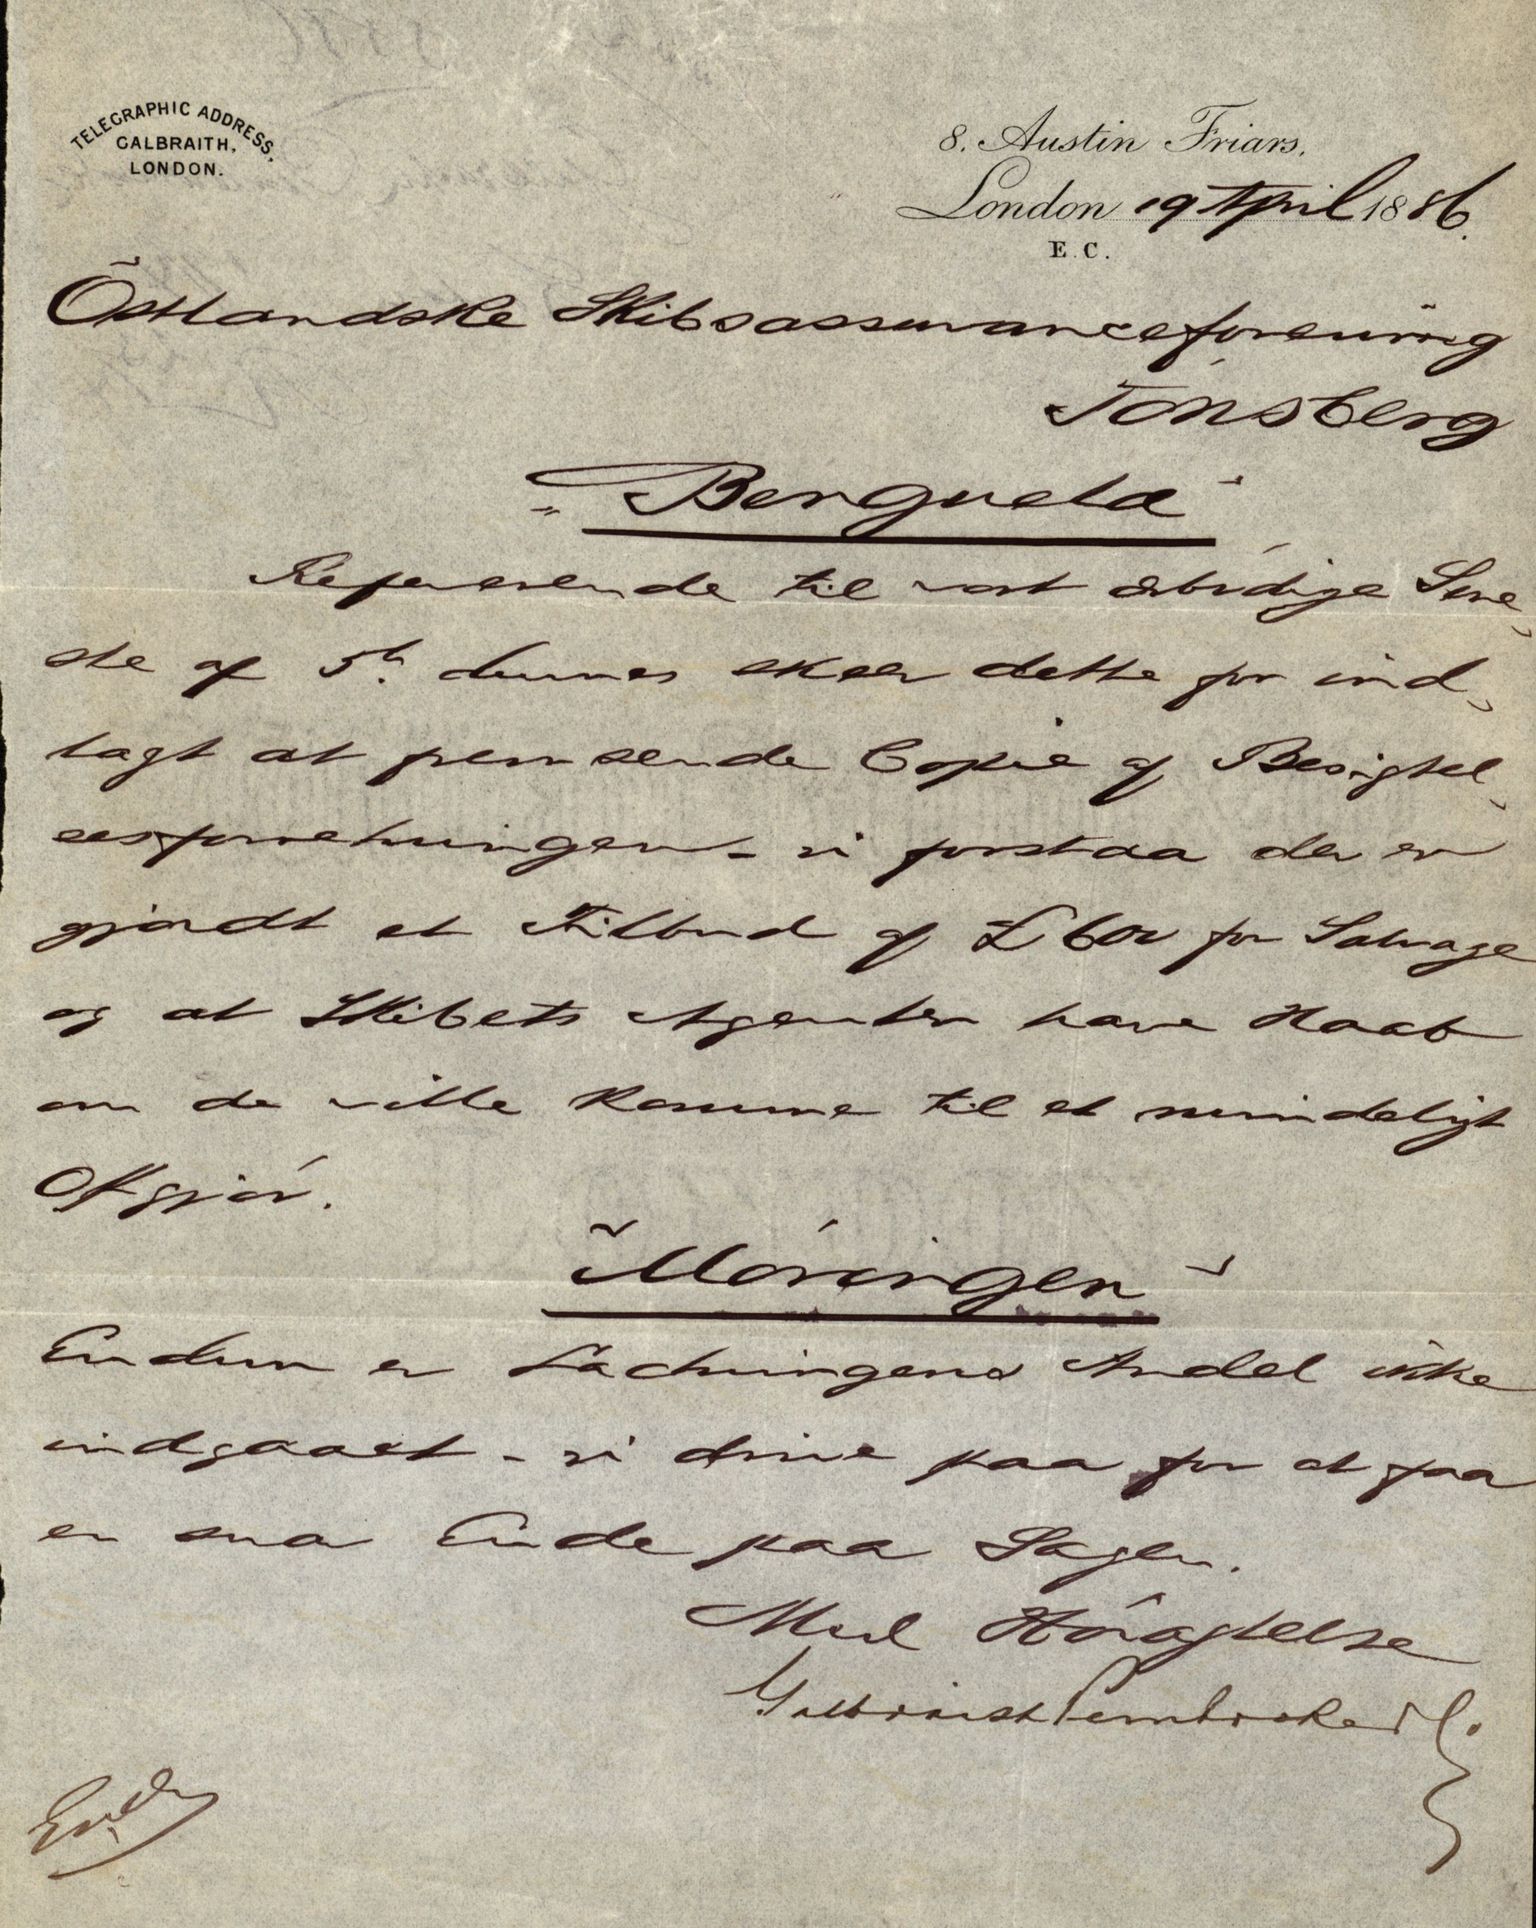 TELEGRAPHIC ADDRESS,
GALBRAITH,
LONDON.
8. Austin Friars.
London 19 April 1886.
E.C.
Östlandske Skibsassuranceforening
Tönsberg
"Berguela"
Refererende til vort ærbødige Sene,
ste af 5th dennes skeer dette for ind,
lagt at fremsende Copie af Besigtel,
sesforretningen - vi forstaa der er
gjördt et Tilbud af £600 for Salvage
og at Skibets Agenter have Haab
om de ville komme til et mindeligt
Opgjör.
"Möringen"
Endnu er Ladningens Andel ikke
indgaaet - vi drive paa for at faa
en snar Ende paa Sagen.
Med Höiagtelse
Galbraith Pembroke & Co.